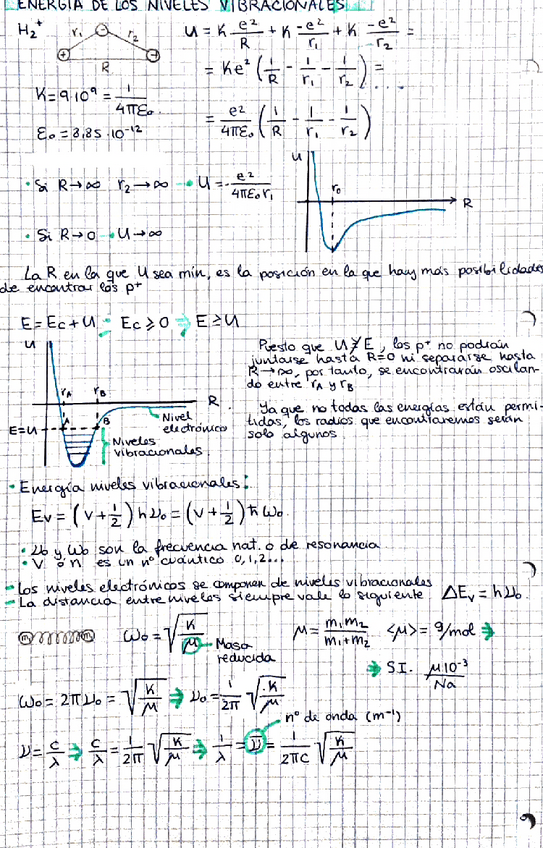 ENERGÍA DE LOS NIVELES VIBRACIONALES
H₂⁺ r₁ r₂ R
U = K e²/R + K -e²/r₁ + K -e²/-r₂ =
= Ke² (1/R - 1/r₁ - 1/r₂) = ...
K = 9·10⁹ = 1/4πε₀
= e²/4πε₀ (1/R - 1/r₁ - 1/r₂)
ε₀ = 8,85·10⁻¹²
· Si R→∞ r₂→∞ → U = -e²/4πε₀r₁
U r₀ R
· Si R→0 → U→∞
La R en la que U sea mín, es la posición en la que hay más posibilidades
de encontrar los p⁺
E = Ec + U Ec ≥ 0 → E ≥ U
Puesto que U ≯ E, los p⁺ no podrán
juntarse hasta R=0 ni separarse hasta
R→∞, por tanto, se encontrarán oscilan-
do entre r_A y r_B
Ya que no todas las energías están permi-
tidas, los radios que encontraremos serán
solo algunos
U r_A r_B R
A B Nivel
electrónico
E=U
Niveles
vibracionales
· Energía niveles vibracionales:
Ev = (v + 1/2) hν₀ = (v + 1/2) ħ ω₀
· ν₀ y ω₀ son la frecuencia nat. o de resonancia
· V o n es un nº cuántico 0,1,2...
- Los niveles electrónicos se componen de niveles vibracionales
- La distancia entre niveles siempre vale lo siguiente ΔEv = hν₀
m m ω₀ = √(K/μ) → Masa
reducida
μ = m₁m₂/m₁+m₂ <μ> = g/mol →
→ S.I. μ10⁻³/Na
ω₀ = 2πν₀ = √(K/μ) → ν₀ = 1/2π √(K/μ)
nº de onda (m⁻¹)
ν = c/λ → c/λ = 1/2π √(K/μ) → 1/λ = ν̄ = 1/2πc √(K/μ)